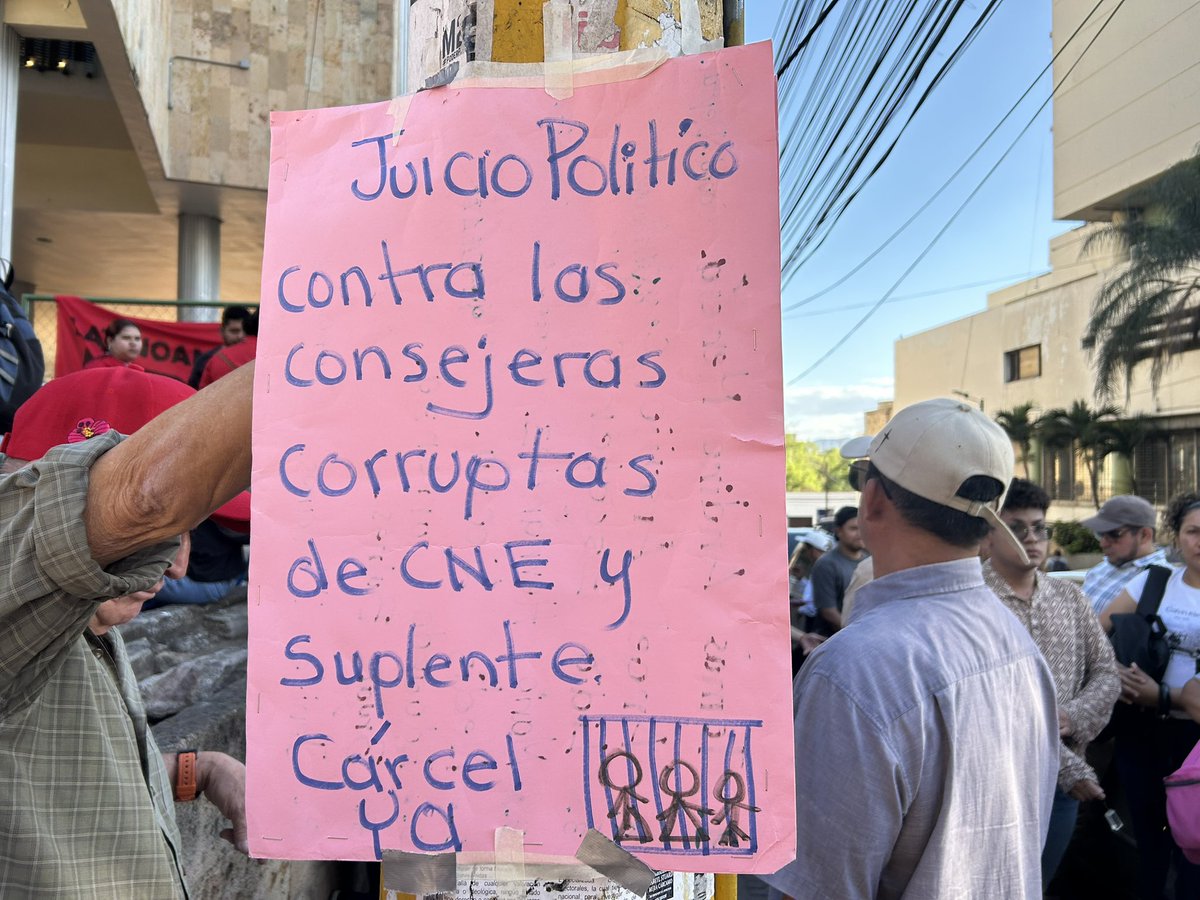 Juicio Politico
contra las
consejeras
corruptas
de CNE y
Suplente.
Cárcel
Ya